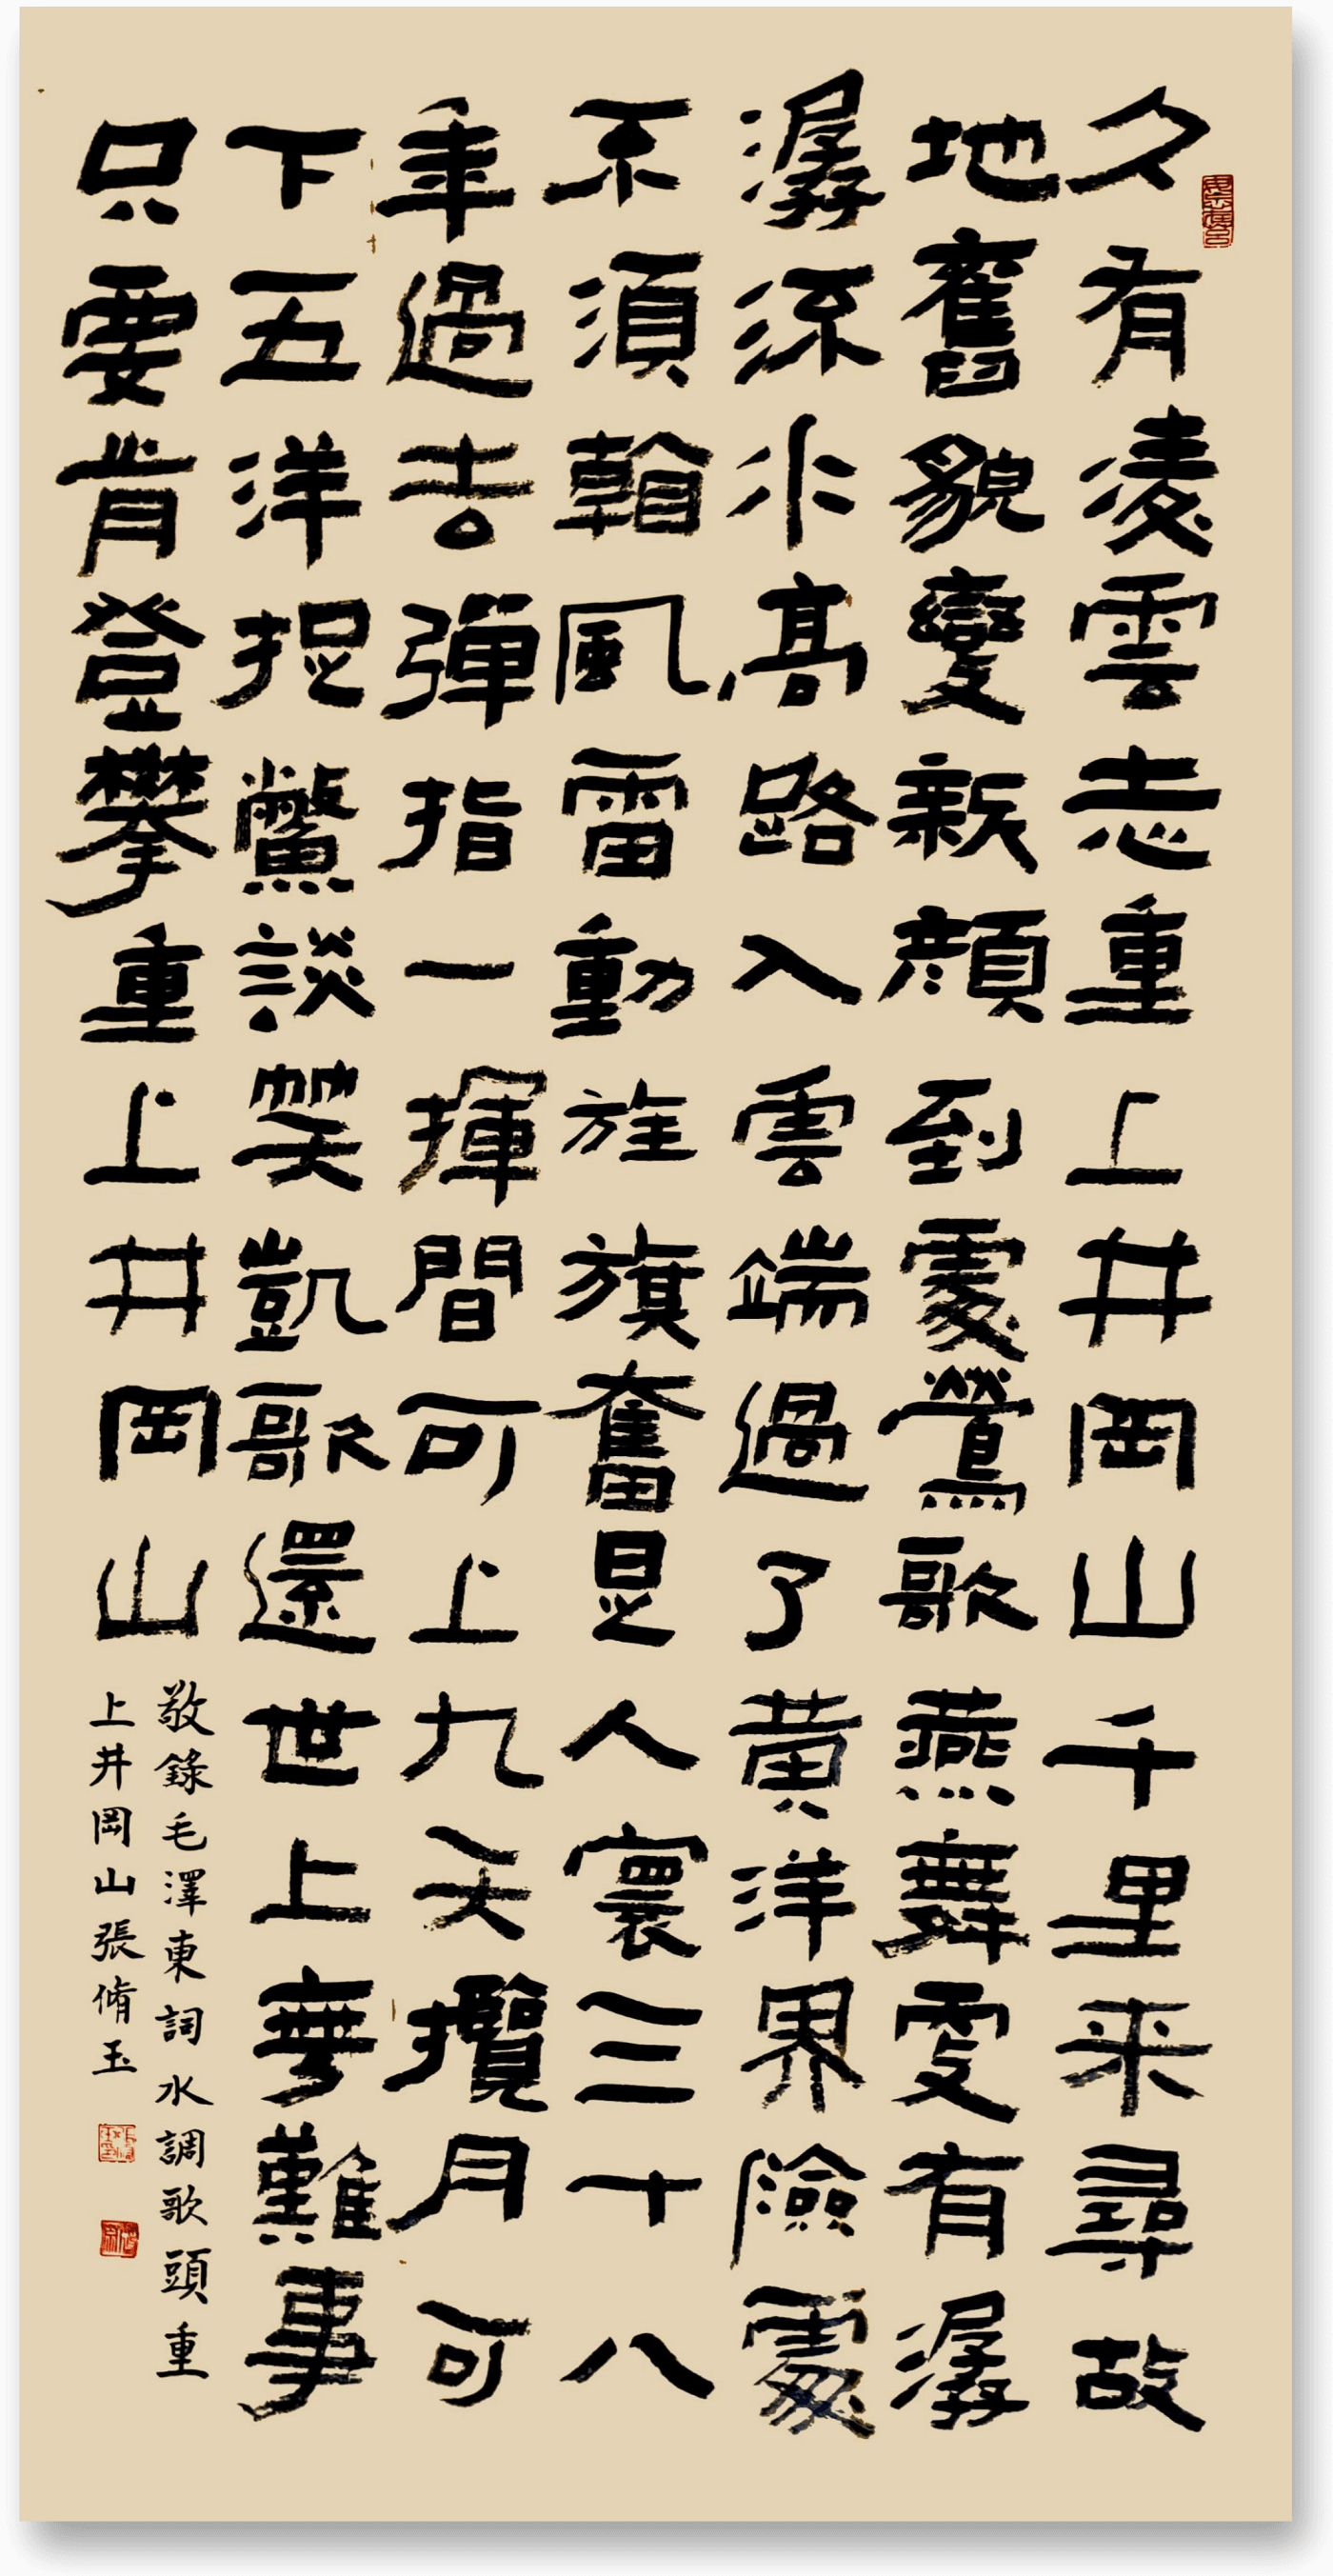 久有凌雲志重上井岡山千里来尋故
地舊貌變新顔到處鶯歌燕舞更有潺
潺流水高路入雲端過了黄洋界險處
不須看風雷動旌旗奮是人寰三十八
年過去彈指一揮間可上九天攬月可
下五洋捉鱉談笑凱歌還世上無難事
只要肯登攀重上井岡山
敬錄毛澤東詞水調歌頭重
上井岡山張脩玉